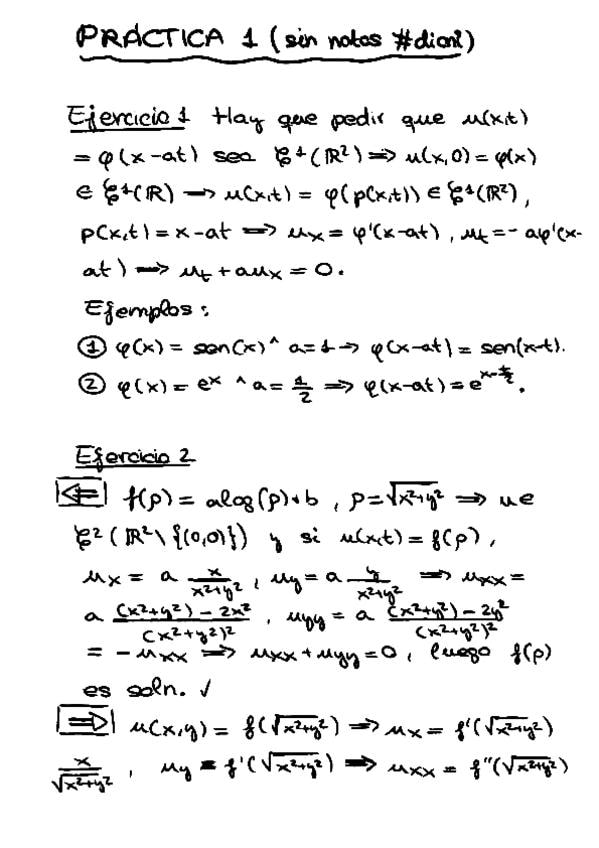 PRÁCTICA 1 (sin notas #dioni)
Ejercicio 1 Hay que pedir que u(x,t)
= φ(x-at) sea ℰ¹(ℝ²) ⟹ u(x,0) = φ(x)
∈ ℰ¹(ℝ) → u(x,t) = φ(p(x,t)) ∈ ℰ¹(ℝ²),
p(x,t) = x-at ⟹ uₓ = φ'(x-at), u_t = -aφ'(x-
at) ⟹ u_t + auₓ = 0.
Ejemplos:
① φ(x) = sen(x) ^ a=1 → φ(x-at) = sen(x-t).
② φ(x) = eˣ ^ a = 1/2 ⟹ φ(x-at) = e^(x-t/2).
Ejercicio 2
⟸ f(ρ) = alog(ρ)+b, ρ = √(x²+y²) ⟹ u∈
ℰ²(ℝ²\{(0,0)}) y si u(x,t) = f(ρ),
u_x = a x/(x²+y²), u_y = a y/(x²+y²) ⟹ u_xx =
a ((x²+y²)-2x²)/(x²+y²)², u_yy = a ((x²+y²)-2y²)/(x²+y²)²
= -u_xx ⟹ u_xx + u_yy = 0, luego f(ρ)
es soln. ✓
⟹ u(x,y) = f(√(x²+y²)) ⟹ u_x = f'(√(x²+y²))
x/√(x²+y²), u_y = f'(√(x²+y²)) ⟹ u_xx = f''(√(x²+y²))